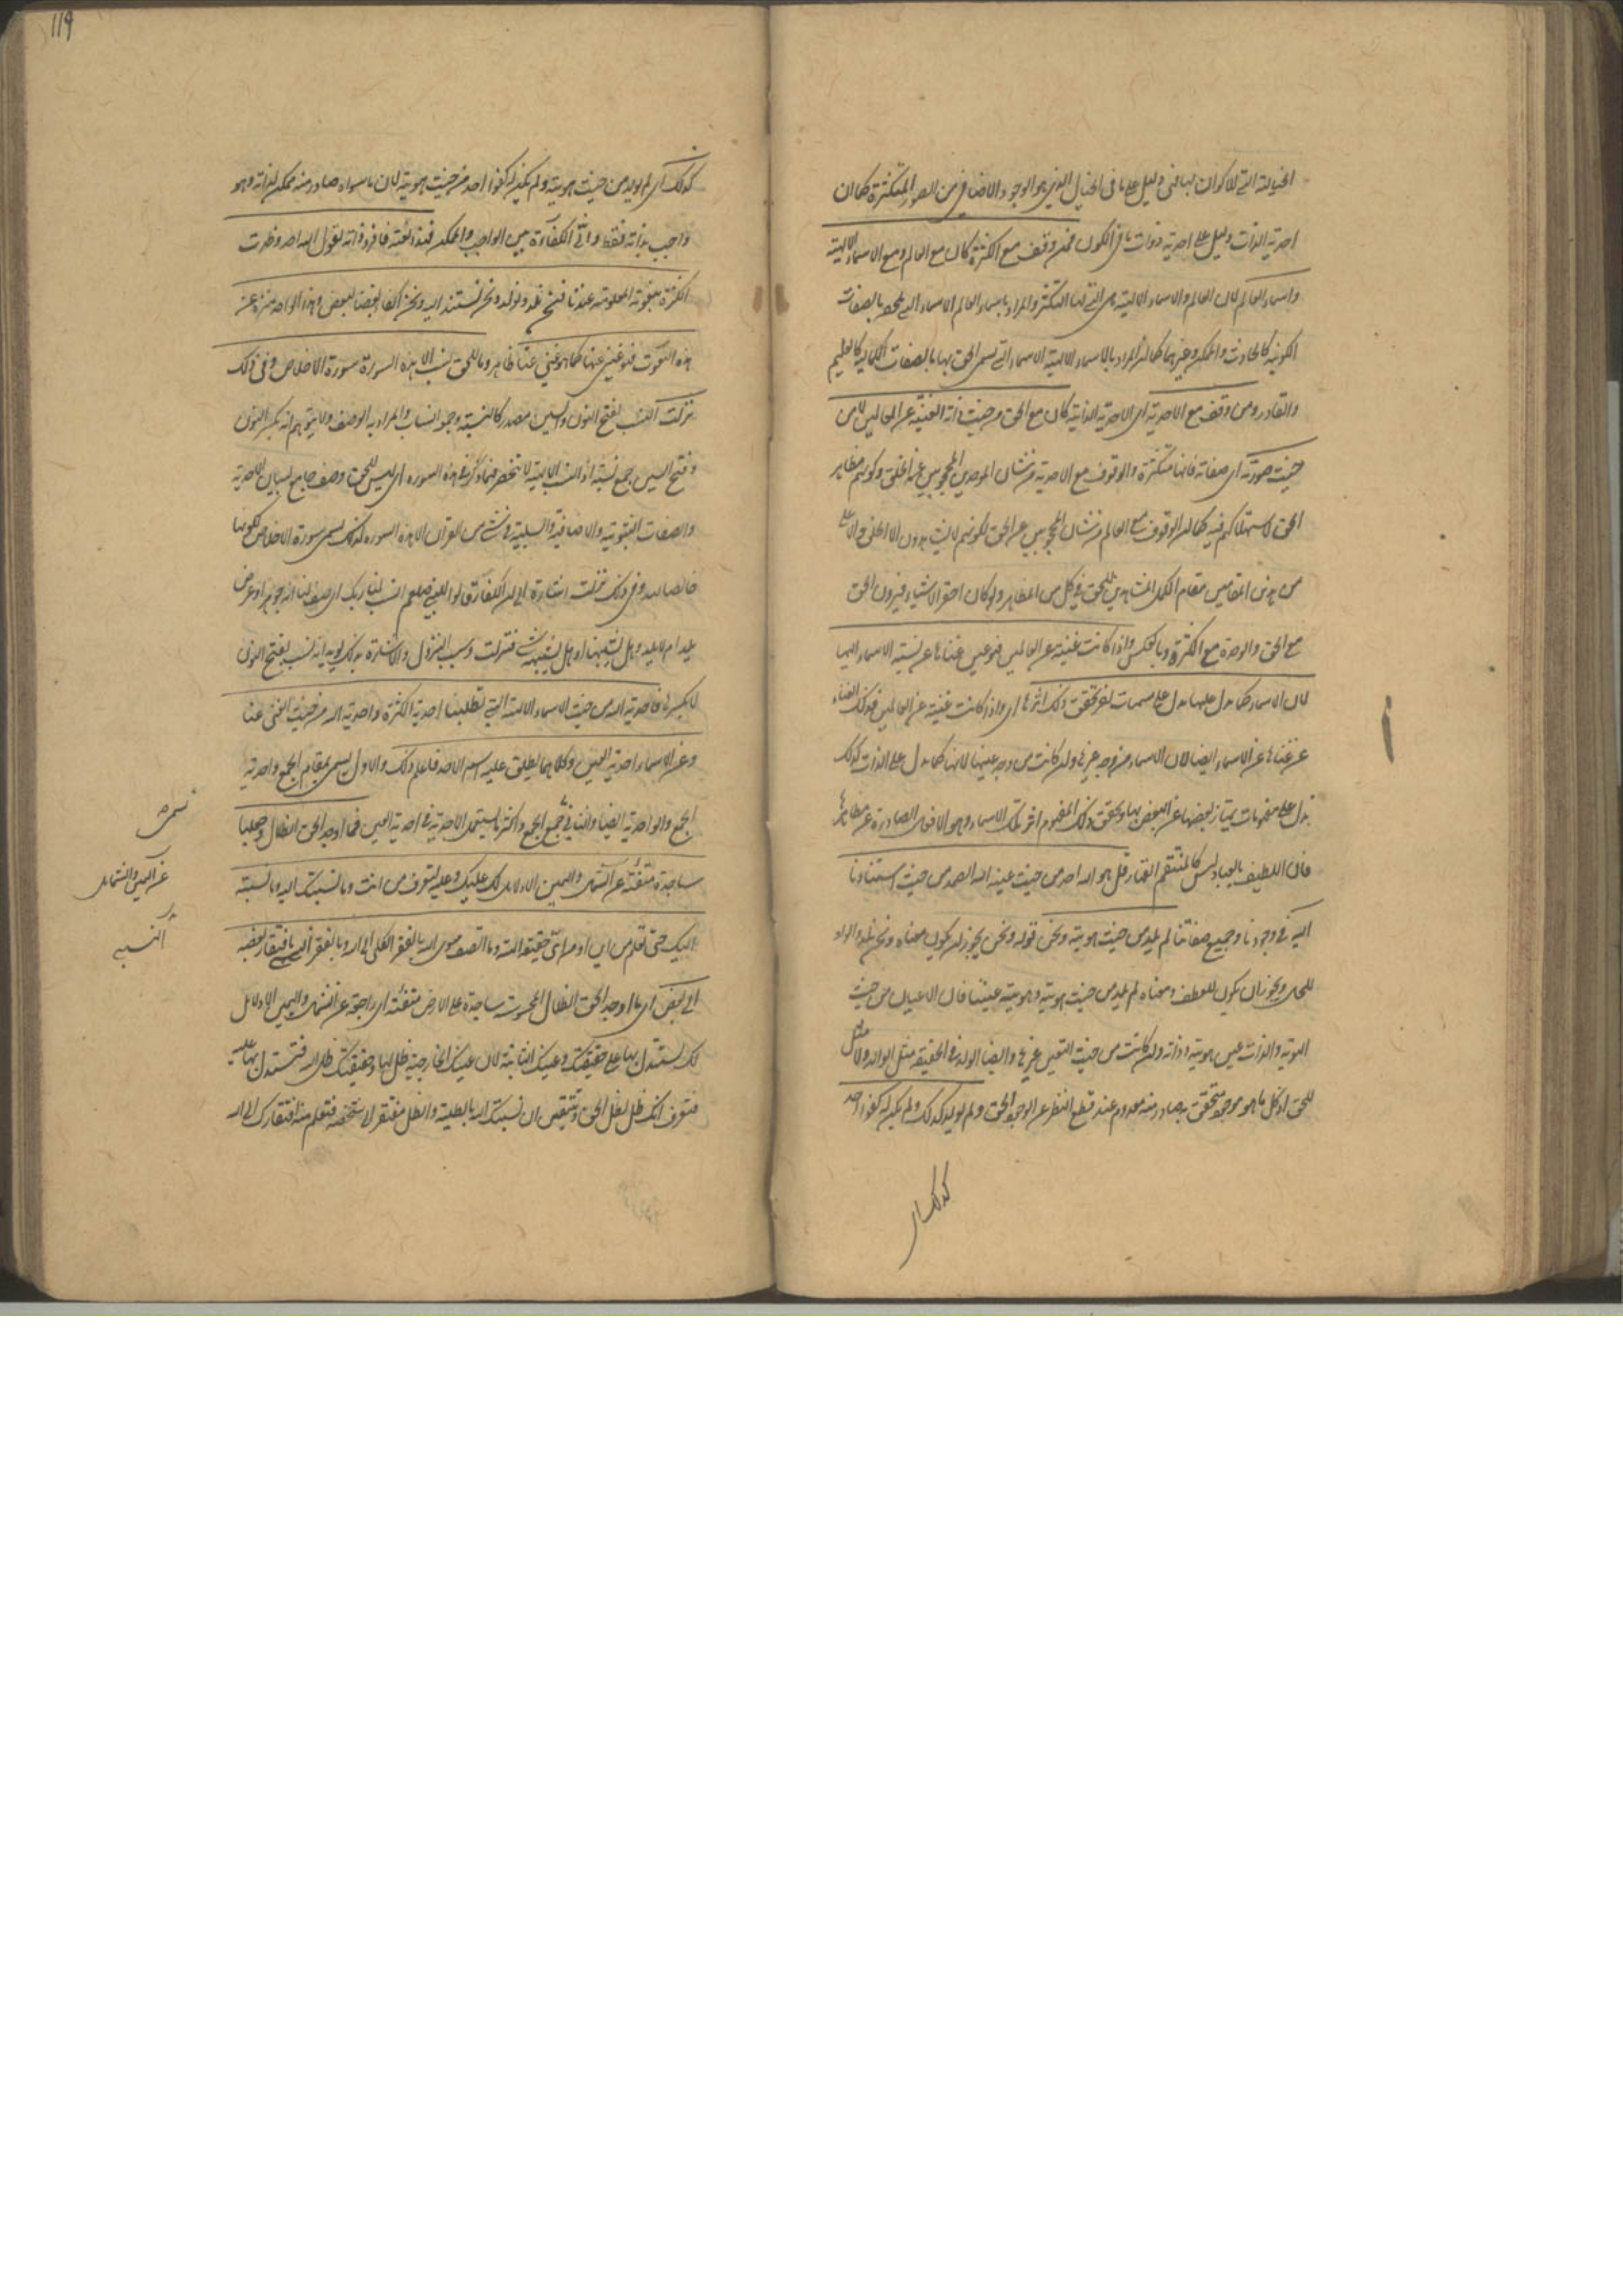 الخيالية التي للاكوان لها في دليل على ما في الخيال الذي هو الوجود الاضافي من الصور المتكثرة كما ان
احدية الذات دليل على احدية ذوات ما في الكون فمن وقف مع الكثرة كان مع العالم ومع الاسماء الالهية
واسماء العالم لان العالم والاسماء الالهية هي التي لها التكثر والمراد باسماء العالم الاسماء التي بالصفات
الكونية كالحادث والممكن وغيرهما كما ان المراد بالاسماء الالهية الاسماء التي يسمى الحق بها بالصفات الكمالية كالعليم
والقادر ومن وقف مع الاحدية اي الاحدية الذاتية كان مع الحق من حيث ذاته الغنية عن العالمين لا من
حيث صورته اي صفاته فانها متكثرة والوقوف مع الاحدية من شان الموحدين المحجوبين عن الخلق وكونهم مظاهر
الحق لاستهلاكهم فيه كما ان الوقوف مع العالم من شان المحجوبين عن الحق لكونهم لا يشاهدون الا الخلق والاعلى
من هذين المقامين مقام الكمل المشاهدين للحق في كل من المظاهر ولو كان احقر الاشياء فيرون الحق
مع الخلق والوحدة مع الكثرة وبالعكس واذا كانت غنية عن العالمين فهو عين غناها عن نسبة الاسماء اليها
لان الاسماء كما تدل عليها تدل على مسميات اخر يحقق ذلك اثرها اي واذا كانت غنية عن العالمين فذلك الغناء
عين غناها عن الاسماء ايضا لان الاسماء من وجه غيرها وان كانت من وجه عينها لانها كما تدل على الذات كذلك
تدل على مفهومات يمتاز بعضها عن البعض بها ويحقق ذلك المفهوم اثر تلك الاسماء وهو الافعال الصادرة عن مظاهرها
فان اللطيف بالعباد ليس كالمنتقم القهار قل هو الله احد من حيث عينه الله الصمد من حيث استنادنا
اليه في وجودنا وجميع صفاتنا لم يلد من حيث هويته ونحن قوله ونحن يجوز ان يكون معناه ونحن نلد والواو
للحال ويجوز ان يكون للعطف ومعناه لم يلد من حيث هويته وهويته عيننا فان الاعيان من حيث
الهوية والذات عين هويته وذاته وان كانت من حيث التعين غيرها وايضا الولد في الحقيقة مثل الوالد ولا مثل
للحق اذ كل ما هو موجود متحقق به صادر منه معدوم عند قطع النظر عن الوجود الحق ولم يولد كذلك ولم يكن له كفوا احد
كذلك اي
١١٩
كذلك اي لم يولد من حيث هويته ولم يكن له كفوا احد من حيث هويته لان ما سواه صادر منه ممكن لذاته وهو
واجب بذاته فقط وانّى الكفاءة بين الواجب والممكن فهذا نعته فافرد ذاته بقوله الله احد وظهرت
الكثرة بنعوته المعلومة عندنا فنحن نلد ونولد ونحن نستند اليه ونحن اكفاء بعضنا لبعض وهذا الواحد منزه عن
هذه النعوت فهو غني عنها كما هو غني عنا ظاهر وما للحق نسب الا هذه السورة سورة الاخلاص وفي ذلك
نزلت النسب بفتح النون والسين مصدر كالنسبة وجمع انساب والمراد به الوصف ولا يتوهم انه بكسر النون
وفتح السين جمع نسبة اذ النسب الالهية لا تنحصر فيما ذكر في هذه السورة اي ليس للحق وصف جامع لبيان الاحدية
والصفات الثبوتية والاضافية والسلبية في شئ من القرآن الا هذه السورة لذلك يسمى سورة الاخلاص لكونها
خالصا لله وفي ذلك نزلت اشارة الى ان الكفار قالوا للنبي صلعم انسب لنا ربك اي صف لنا انه جوهر او عرض
يلد ام لا يلد وهل يشبهنا او هل نشبهه فنزلت وسبب النزول والاشارة بذلك يؤيد انه نسب بفتح النون
لا بكسرها فاحدية الله من حيث الاسماء الالهية التي تطلبنا احدية الكثرة واحدية الله من حيث الغنى عنا
وعن الاسماء احدية العين وكلاهما يطلق عليه اسم الاحد فاعلم ذلك والاول يسمى بمقام الجمع واحدية
الجمع والواحدية ايضا والثاني جمع الجمع واكثر ما يستعمل الاحدية في احدية العين فما اوجد الحق الظلال وجعلها
ساجدة متفيئة عن الشمال واليمين الا دلائل لك عليك وعليه لتعرف من انت وما نسبتك اليه وما نسبته
اليك حتى تعلم من اين او من اي حقيقة الهية وما اتصف ما سوى الله بالفقر الكلي الى الله وبالفقر النسبي بافتقار بعضه
الى بعض اي ما اوجد الحق الظلال المحسوسة ساجدة على الارض متفيئة اي راجعة عن الشمال واليمين الا دلائل
لك لتستدل بها على حقيقتك وعينك الثابتة لان عينك الخارجية ظل لها وحقيقتك ظل الله فتستدل بها عليه
فتعرف انك ظل لظل الحق وتتيقن ان نسبتك اليه بالظلية والظل مفتقر الى شخصه فتعلم منه افتقارك الى الله
عن اليمين والشمال
النسبي